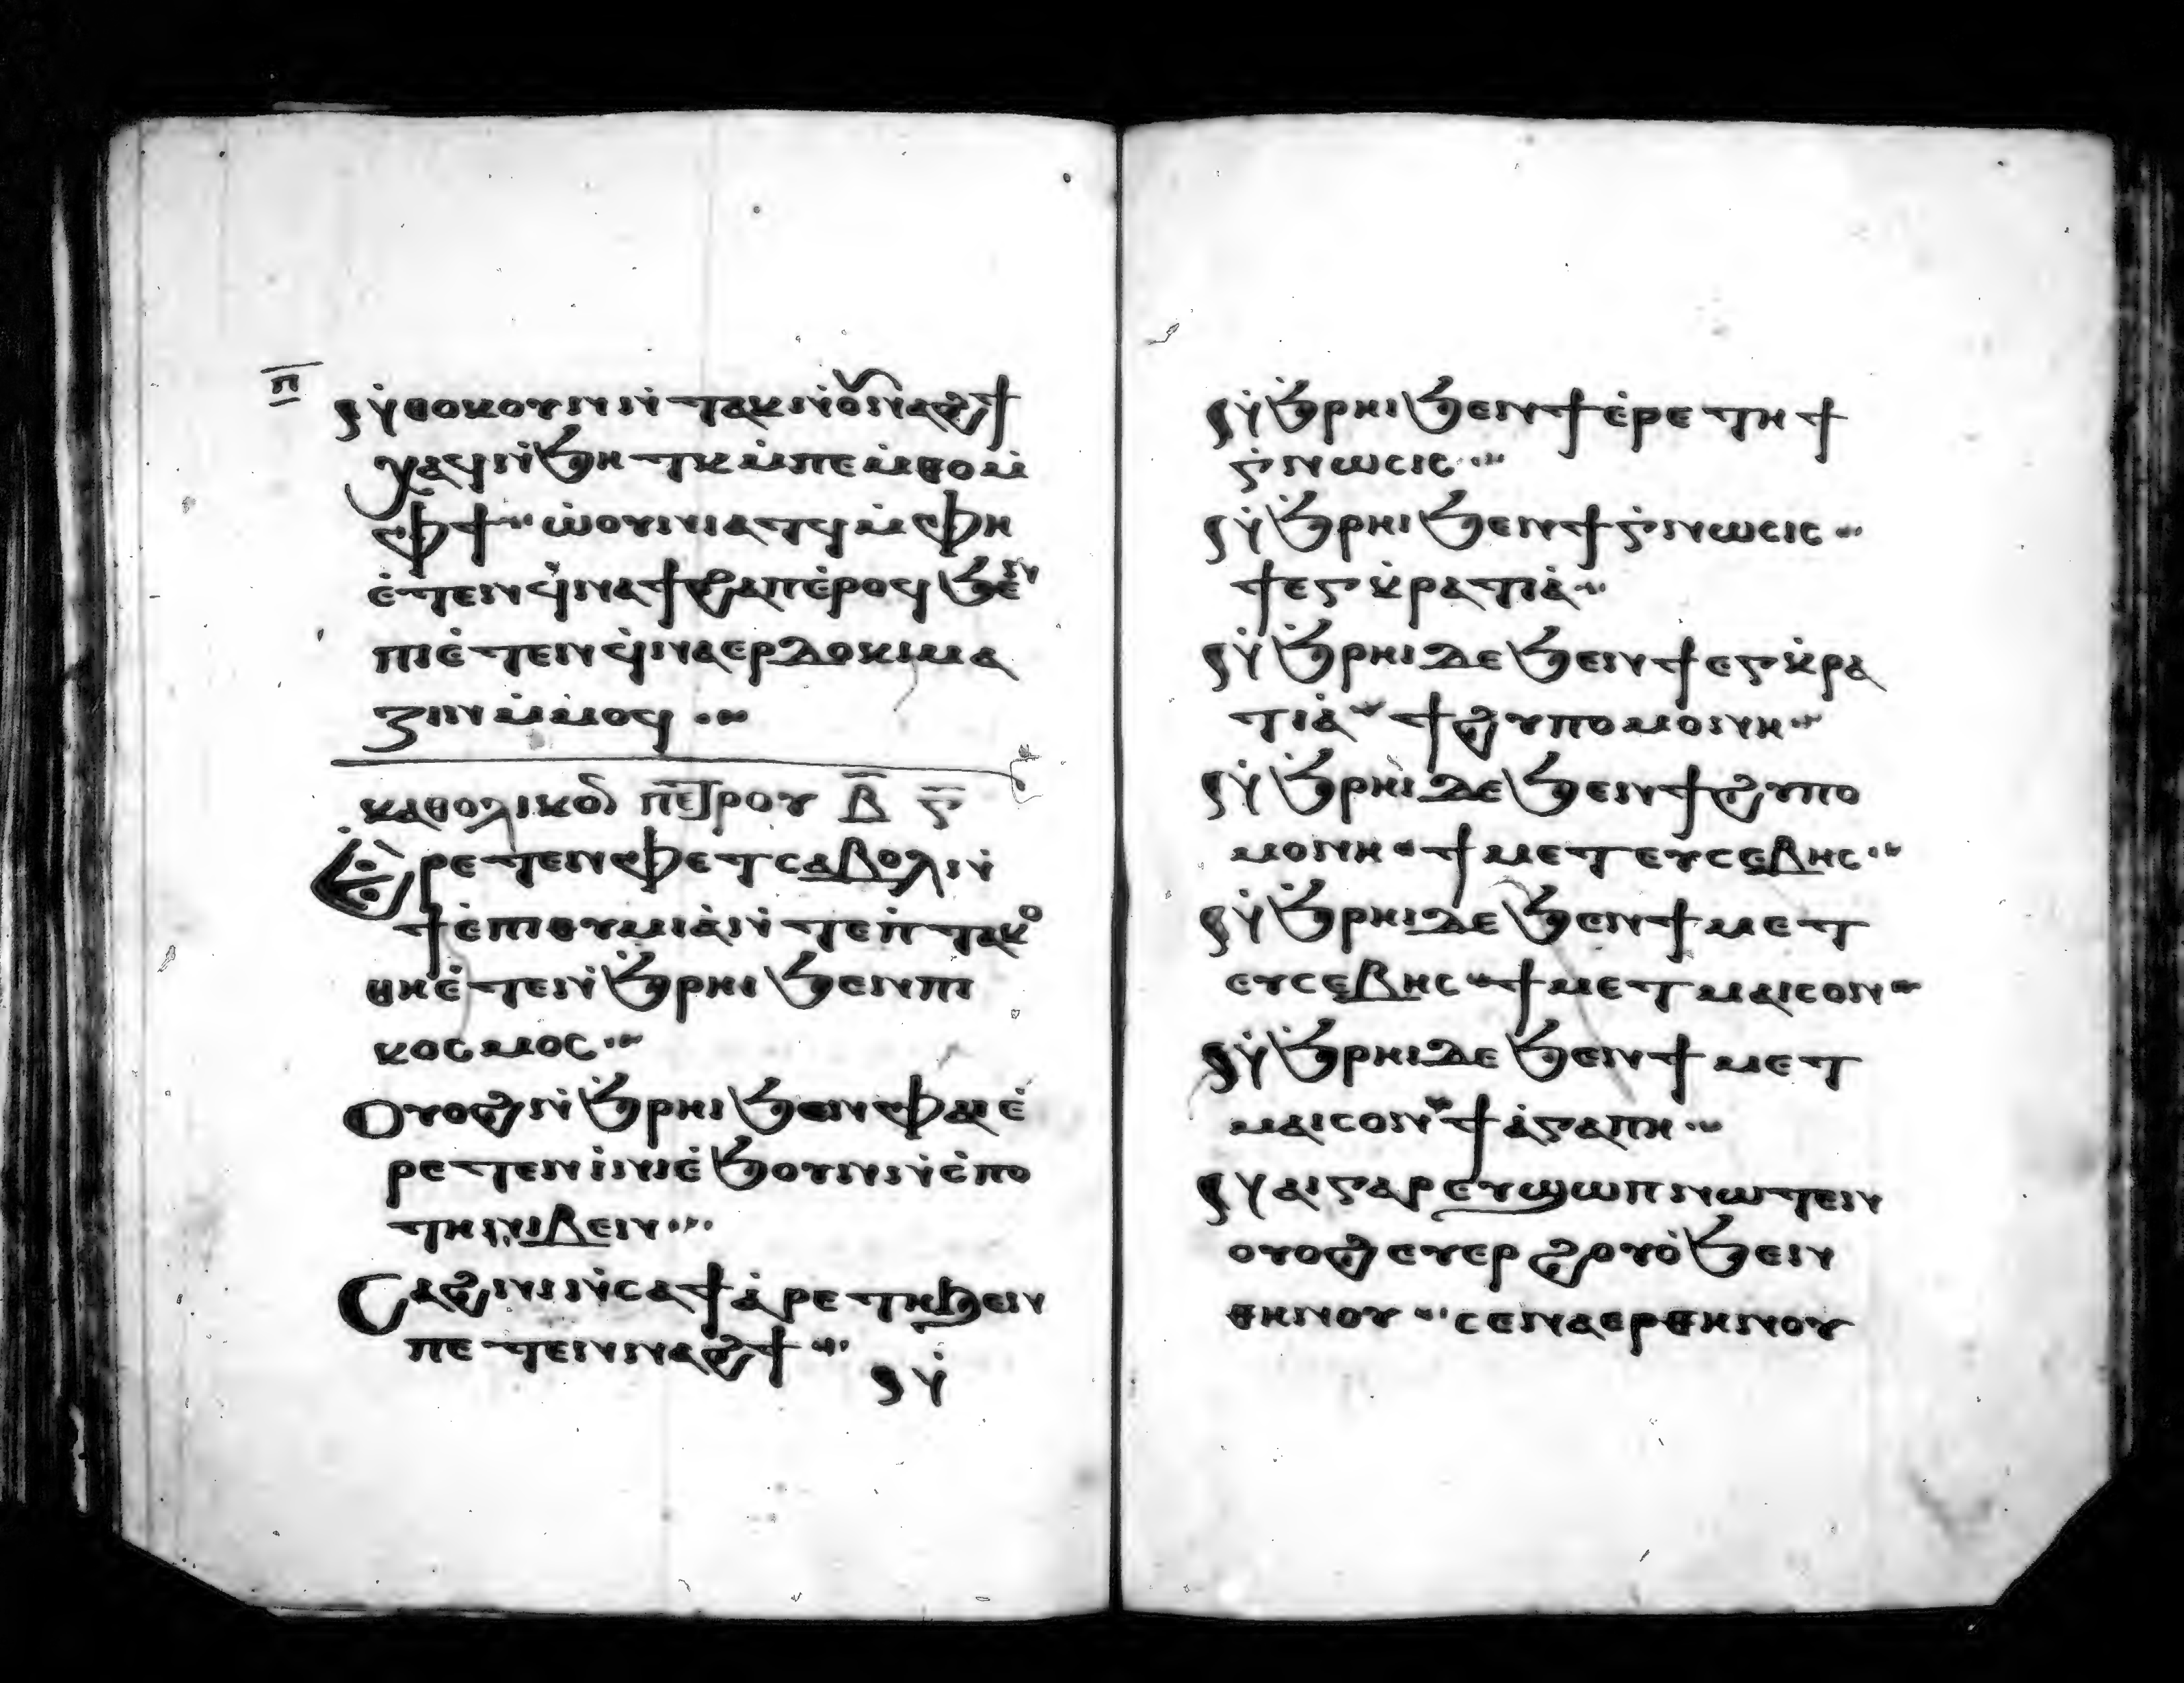 ⲡ̅
ⲛ̇ⲑⲟⲕ ⲟⲩⲛ ⲛ̇ⲧⲁⲕ ⲛ̇ⲟⲩⲛⲁϩϯ
ⲭⲁϥ ⲛ̇ϧⲏⲧⲕ ⲙ̇ⲡⲉⲙ̇ⲑⲟ ⲙ̇
ⲫϯ ⲱ̇ⲟⲩⲛⲓⲁⲧϥ ⲙ̇ⲫⲏ
ⲉ̇ⲧⲉⲛϥ̇ⲛⲁϯϩⲁⲡ ⲉ̇ⲣⲟϥ ϧⲉⲛ
ⲡⲓⲉ̇ⲧⲉⲛϥ̇ⲛⲁⲉⲣⲇⲟⲕⲓⲙⲁ
ⲍⲓⲛ ⲙ̇ⲙⲟϥ
ⲕⲁⲑⲟⲗⲓⲕⲟⲛ ⲡⲉⲧⲣⲟⲩ ⲃ̅ ⲋ̅
Ⲉ̀ⲣⲉⲧⲉⲛⲫⲉⲧ ⲥⲁⲃⲟⲗ ⲛ̇
ϯⲉ̇ⲡⲓⲑⲩⲙⲓⲁ̇ ⲛ̇ⲧⲉ ⲡ̇ⲧⲁⲕⲟ
ⲑⲏⲉ̇ⲧⲉⲛ̇ϧ̇ⲣⲏⲓ ϧⲉⲛ ⲡⲓ
ⲕⲟⲥⲙⲟⲥ
Ⲟⲩⲟϩ ⲛ̇ϧ̇ⲣⲏⲓ ϧⲉⲛ ⲫⲁⲓ ⲉ̇
ⲣⲉⲧⲉⲛⲓ̇ⲛⲓ ⲉ̇ϧⲟⲩⲛ ⲛ̇ⲥ̇ⲡⲟ
ⲧⲏ ⲛⲓⲃⲉⲛ
Ⲥⲁϩⲛⲓ ⲛ̇ⲥⲁ ϯⲁ̇ⲣⲉⲧⲏ ϧⲉⲛ
ⲡⲉⲧⲉⲛⲛⲁϩϯ
ⲛ̇
ⲛ̇ϧ̇ⲣⲏⲓ ϧⲉⲛ ϯⲉ̇ⲣⲉⲧⲏ ϯ
ⲅ̇ⲛⲱⲥⲓⲥ
ⲛ̇ϧ̇ⲣⲏⲓ ϧⲉⲛ ϯⲅ̇ⲛⲱⲥⲓⲥ
ϯⲉⲅⲕ̇ⲣⲁⲧⲓⲁ̇
ⲛ̇ϧ̇ⲣⲏⲓ ⲇⲉ ϧⲉⲛ ϯⲉⲅⲕ̇ⲣⲁ
ⲧⲓⲁ̇ ϯϩⲩⲡⲟⲙⲟⲛⲏ
ⲛ̇ϧ̇ⲣⲏⲓ ⲇⲉ ϧⲉⲛ ϯϩⲩⲡⲟ
ⲙⲟⲛⲏ ϯⲙⲉⲧⲉⲩⲥⲉⲃⲏⲥ
ⲛ̇ϧ̇ⲣⲏⲓ ⲇⲉ ϧⲉⲛ ϯⲙⲉⲧ
ⲉⲩⲥⲉⲃⲏⲥ ϯⲙⲉⲧⲙⲁⲓⲥⲟⲛ
ⲛ̇ϧ̇ⲣⲏⲓ ⲇⲉ ϧⲉⲛ ϯⲙⲉⲧ
ⲙⲁⲓⲥⲟⲛ ϯⲁ̇ⲅⲁⲡⲏ
ⲛⲁⲓ ⲅⲁⲣ ⲉⲩϣⲱⲡ ⲛⲱⲧⲉⲛ
ⲟⲩⲟϩ ⲉⲩⲉⲣϩⲟⲩⲟ̇ ϧⲉⲛ
ⲑⲏⲛⲟⲩ ⲥⲉⲛⲁⲉⲣ ⲑⲏⲛⲟⲩ